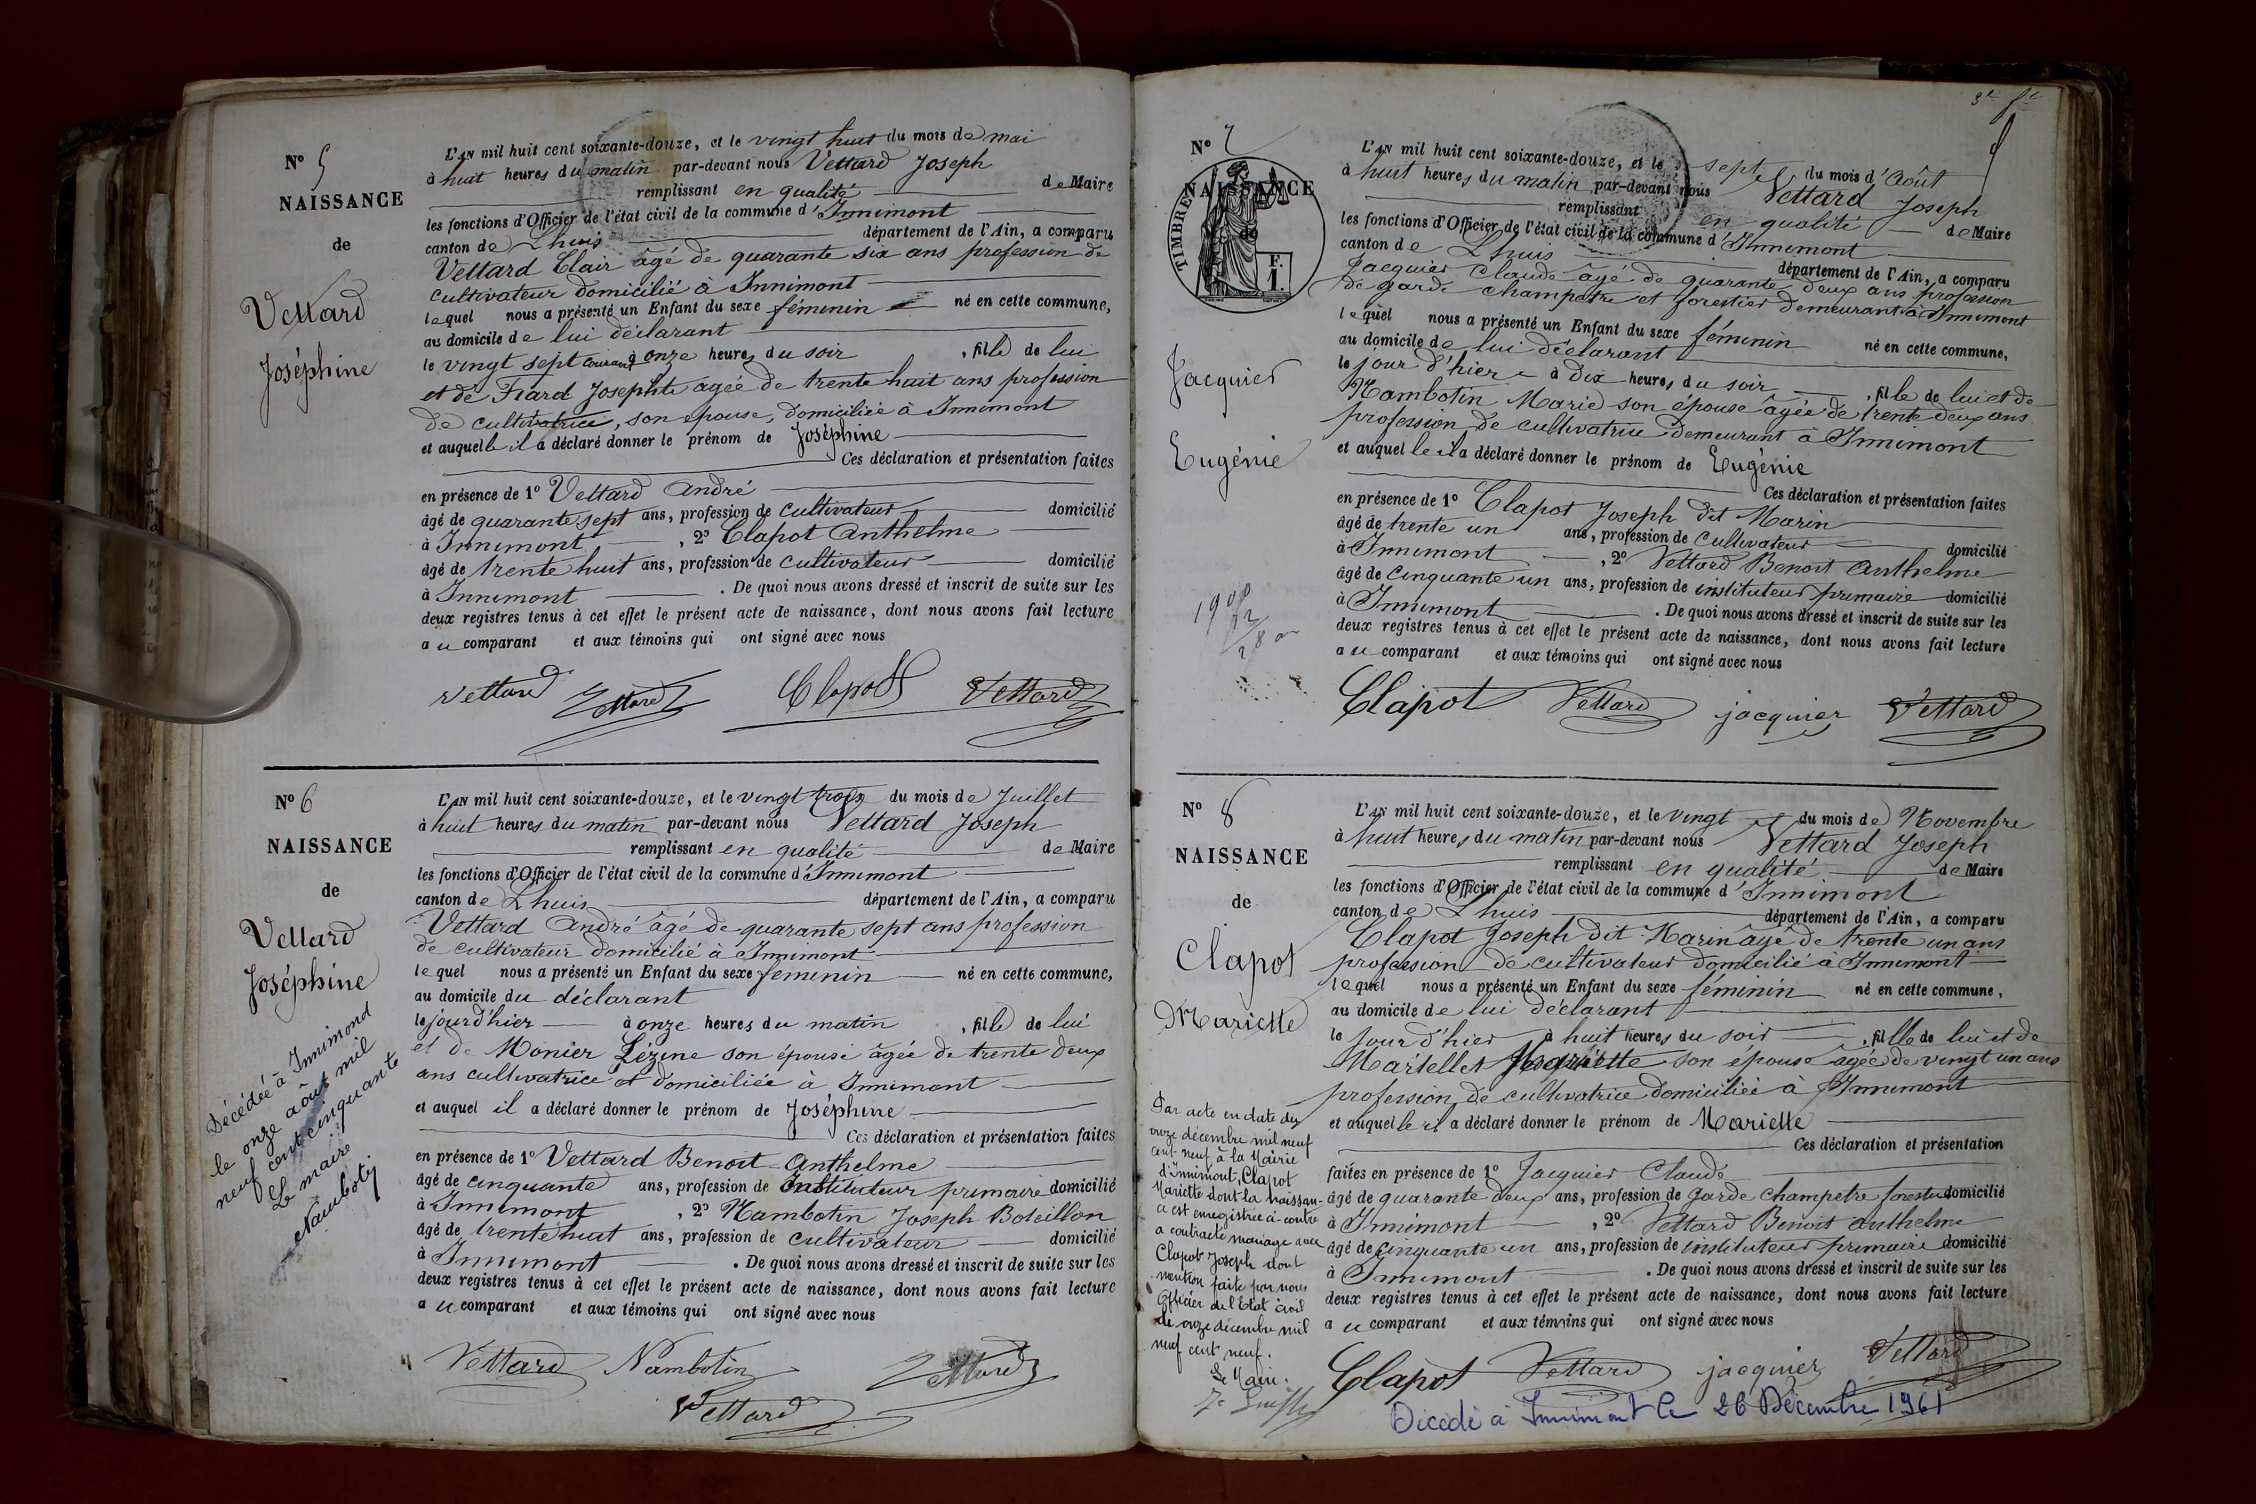 N° 5
NAISSANCE
de
Vettard
Joséphine
L'AN mil huit cent soixante-douze, et le vingt huit du mois de mai
à huit heures du matin par-devant nous Vettard Joseph
remplissant en qualité de Maire
les fonctions d'Officier de l'état civil de la commune d'Innimont
canton de Lhuis département de l'Ain, a comparu
Vettard Clair âgé de quarante six ans profession de
cultivateur domicilié à Innimont
lequel nous a présenté un Enfant du sexe féminin né en cette commune,
au domicile de lui déclarant
le vingt sept courant à onze heures du soir , fille de lui
et de Fiard Josephte agée de trente huit ans profession
de cultivatrice, son epouse, domiciliée à Innimont
et auquelle il a déclaré donner le prénom de Joséphine
Ces déclaration et présentation faites
en présence de 1° Vettard André
âgé de quarante sept ans, profession de cultivateur domicilié
à Innimont , 2° Clapot Anthelme
âgé de trente huit ans, profession de cultivateur domicilié
à Innimont . De quoi nous avons dressé et inscrit de suite sur les
deux registres tenus à cet effet le présent acte de naissance, dont nous avons fait lecture
au comparant et aux témoins qui ont signé avec nous
Vettard Vettard Clapot Vettard
N° 6
NAISSANCE
de
Vettard
Joséphine
Décédée à Innimond
le onze août mil
neuf cent cinquante
Le maire
Nambotin
L'AN mil huit cent soixante-douze, et le vingt trois du mois de Juillet
à huit heures du matin par-devant nous Vettard Joseph
remplissant en qualité de Maire
les fonctions d'Officier de l'état civil de la commune d'Innimont
canton de Lhuis département de l'Ain, a comparu
Vettard André âgé de quarante sept ans profession
de cultivateur domicilié à Innimont
lequel nous a présenté un Enfant du sexe féminin né en cette commune,
au domicile du déclarant
le jour d'hier à onze heures du matin , fille de lui
et de Monier Lézine son épouse âgée de trente deux
ans cultivatrice et domiciliée à Innimont
et auquel il a déclaré donner le prénom de Joséphine
Ces déclaration et présentation faites
en présence de 1° Vettard Benoit Anthelme
âgé de cinquante ans, profession de instituteur primaire domicilié
à Innimont , 2° Nambotin Joseph Boteillon
âgé de trente huit ans, profession de cultivateur domicilié
à Innimont . De quoi nous avons dressé et inscrit de suite sur les
deux registres tenus à cet effet le présent acte de naissance, dont nous avons fait lecture
au comparant et aux témoins qui ont signé avec nous
Vettard Nambotin Vettard
Vettard
N° 7
NAISSANCE
de
TIMBRE
F.
1.
Jacquier
Eugénie
1900
72
28 an
L'AN mil huit cent soixante-douze, et le sept du mois d'Août
à huit heures du matin par-devant nous Vettard Joseph
remplissant en qualité de Maire
les fonctions d'Officier de l'état civil de la commune d'Innimont
canton de Lhuis département de l'Ain, a comparu
Jacquier Claude âgé de quarante deux ans profession
de garde champetre et forestier demeurant à Innimont
lequel nous a présenté un Enfant du sexe féminin né en cette commune,
au domicile de lui déclarant
le jour d'hier à dix heures du soir , fille de lui et de
Nambotin Marie son épouse âgée de trente deux ans
profession de cultivatrice demeurant à Innimont
et auquel le il a déclaré donner le prénom de Eugénie
Ces déclaration et présentation faites
en présence de 1° Clapot Joseph dit Marin
âgé de trente un ans, profession de cultivateur domicilié
à Innimont , 2° Vettard Benoit Anthelme
âgé de cinquante un ans, profession de instituteur primaire domicilié
à Innimont . De quoi nous avons dressé et inscrit de suite sur les
deux registres tenus à cet effet le présent acte de naissance, dont nous avons fait lecture
au comparant et aux témoins qui ont signé avec nous
Clapot Vettard jacquier Vettard
N° 8
NAISSANCE
de
Clapot
Mariette
Par acte en date du
onze décembre mil neuf
cent neuf à la Mairie
d'Innimont, Clapot
Mariette dont la naissan-
ce est enregistrée ci-contre
a contracté mariage avec
Clapot Joseph dont
mention faite par nous
Officier de l'Etat civil
le onze décembre mil
neuf cent neuf.
Le Maire.
L'AN mil huit cent soixante-douze, et le vingt du mois de Novembre
à huit heures du matin par-devant nous Vettard Joseph
remplissant en qualité de Maire
les fonctions d'Officier de l'état civil de la commune d'Innimont
canton de Lhuis département de l'Ain, a comparu
Clapot Joseph dit Marin âgé de trente un ans
profession de cultivateur domicilié à Innimont
lequel nous a présenté un Enfant du sexe féminin né en cette commune,
au domicile de lui déclarant
le jour d'hier à huit heures du soir , fille de lui et de
Martellet Mariette son épouse âgée de vingt un ans
profession de cultivatrice domiciliée à Innimont
et auquel le il a déclaré donner le prénom de Mariette
Ces déclaration et présentation
faites en présence de 1° Jacquier Claude
âgé de quarante deux ans, profession de garde champetre forestier domicilié
à Innimont , 2° Vettard Benoit Anthelme
âgé de cinquante un ans, profession de instituteur primaire domicilié
à Innimont . De quoi nous avons dressé et inscrit de suite sur les
deux registres tenus à cet effet le présent acte de naissance, dont nous avons fait lecture
au comparant et aux témoins qui ont signé avec nous
Clapot Vettard jacquier Vettard
Décédé à Innimont le 26 Décembre 1961